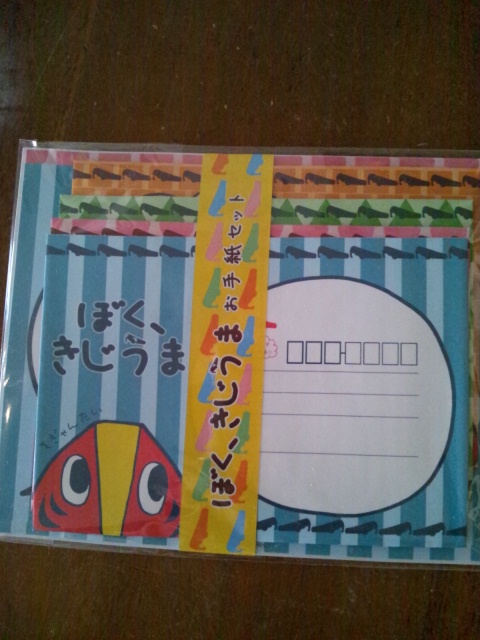 ぼく、
きじうま
ぼく、きじうま お手紙セット